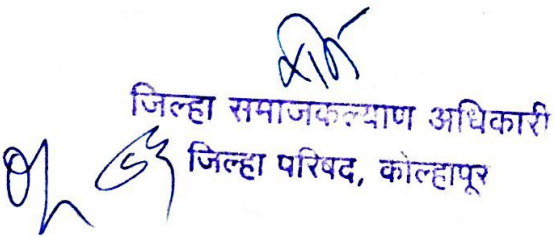 जिल्हा समाजकल्याण अधिकारी
जिल्हा परिषद, कोल्हापूर